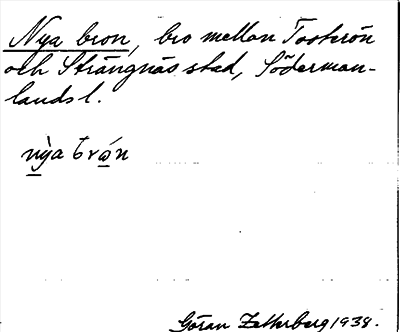 Nya bron, bro mellan Tosterön
och Strängnäs stad, Söderman-
lands l.
nỳa brώn
Göran Zetterberg 1938.